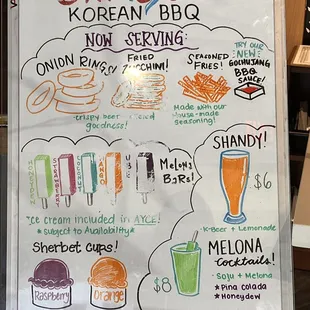 KOREAN BBQ
NOW SERVING:
ONION RINGS
FRIED
ZUCCHINI!
SEASONED
FRIES!
TRY OUR
NEW
GOCHUJANG
BBQ
SAUCE!
-crispy beer
goodness!
Made with our
House-made
Seasoning!
HONEYDEW
STRAWBERRY
COCONUT
MANGO
UBE
Melona
BARS!
Ice cream included in AYCE!
*Subject to Availability*
Sherbet cups!
Raspberry
Orange
SHANDY!
$6
K-Beer + Lemonade
MELONA
cocktails!
- Soju + Melona
* Pina colada
* Honeydew
$8